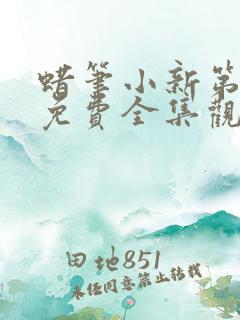 蜡筆小新第
免費全集觀
田地851
未经同意禁止转载